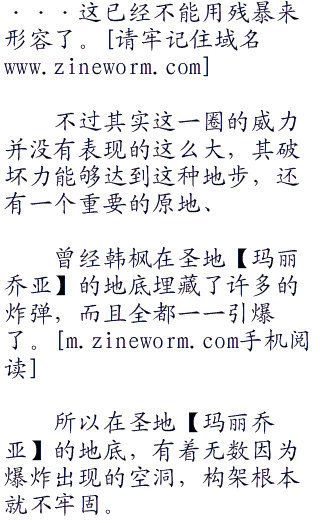 ···这已经不能用残暴来
形容了。[请牢记住域名
www.zineworm.com]
不过其实这一圈的威力
并没有表现的这么大，其破
坏力能够达到这种地步，还
有一个重要的原地、
曾经韩枫在圣地【玛丽
乔亚】的地底埋藏了许多的
炸弹，而且全都一一引爆
了。[m.zineworm.com手机阅
读]
所以在圣地【玛丽乔
亚】的地底，有着无数因为
爆炸出现的空洞，构架根本
就不牢固。